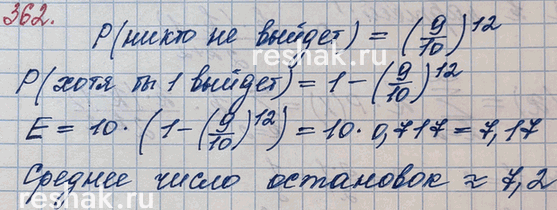 362.
P(никто не выйдет) = (9/10)^12
P(хотя бы 1 выйдет) = 1 - (9/10)^12
E = 10 · (1 - (9/10)^12) = 10 · 0,717 = 7,17
Среднее число остановок ≈ 7,2
reshak.ru
reshak.ru